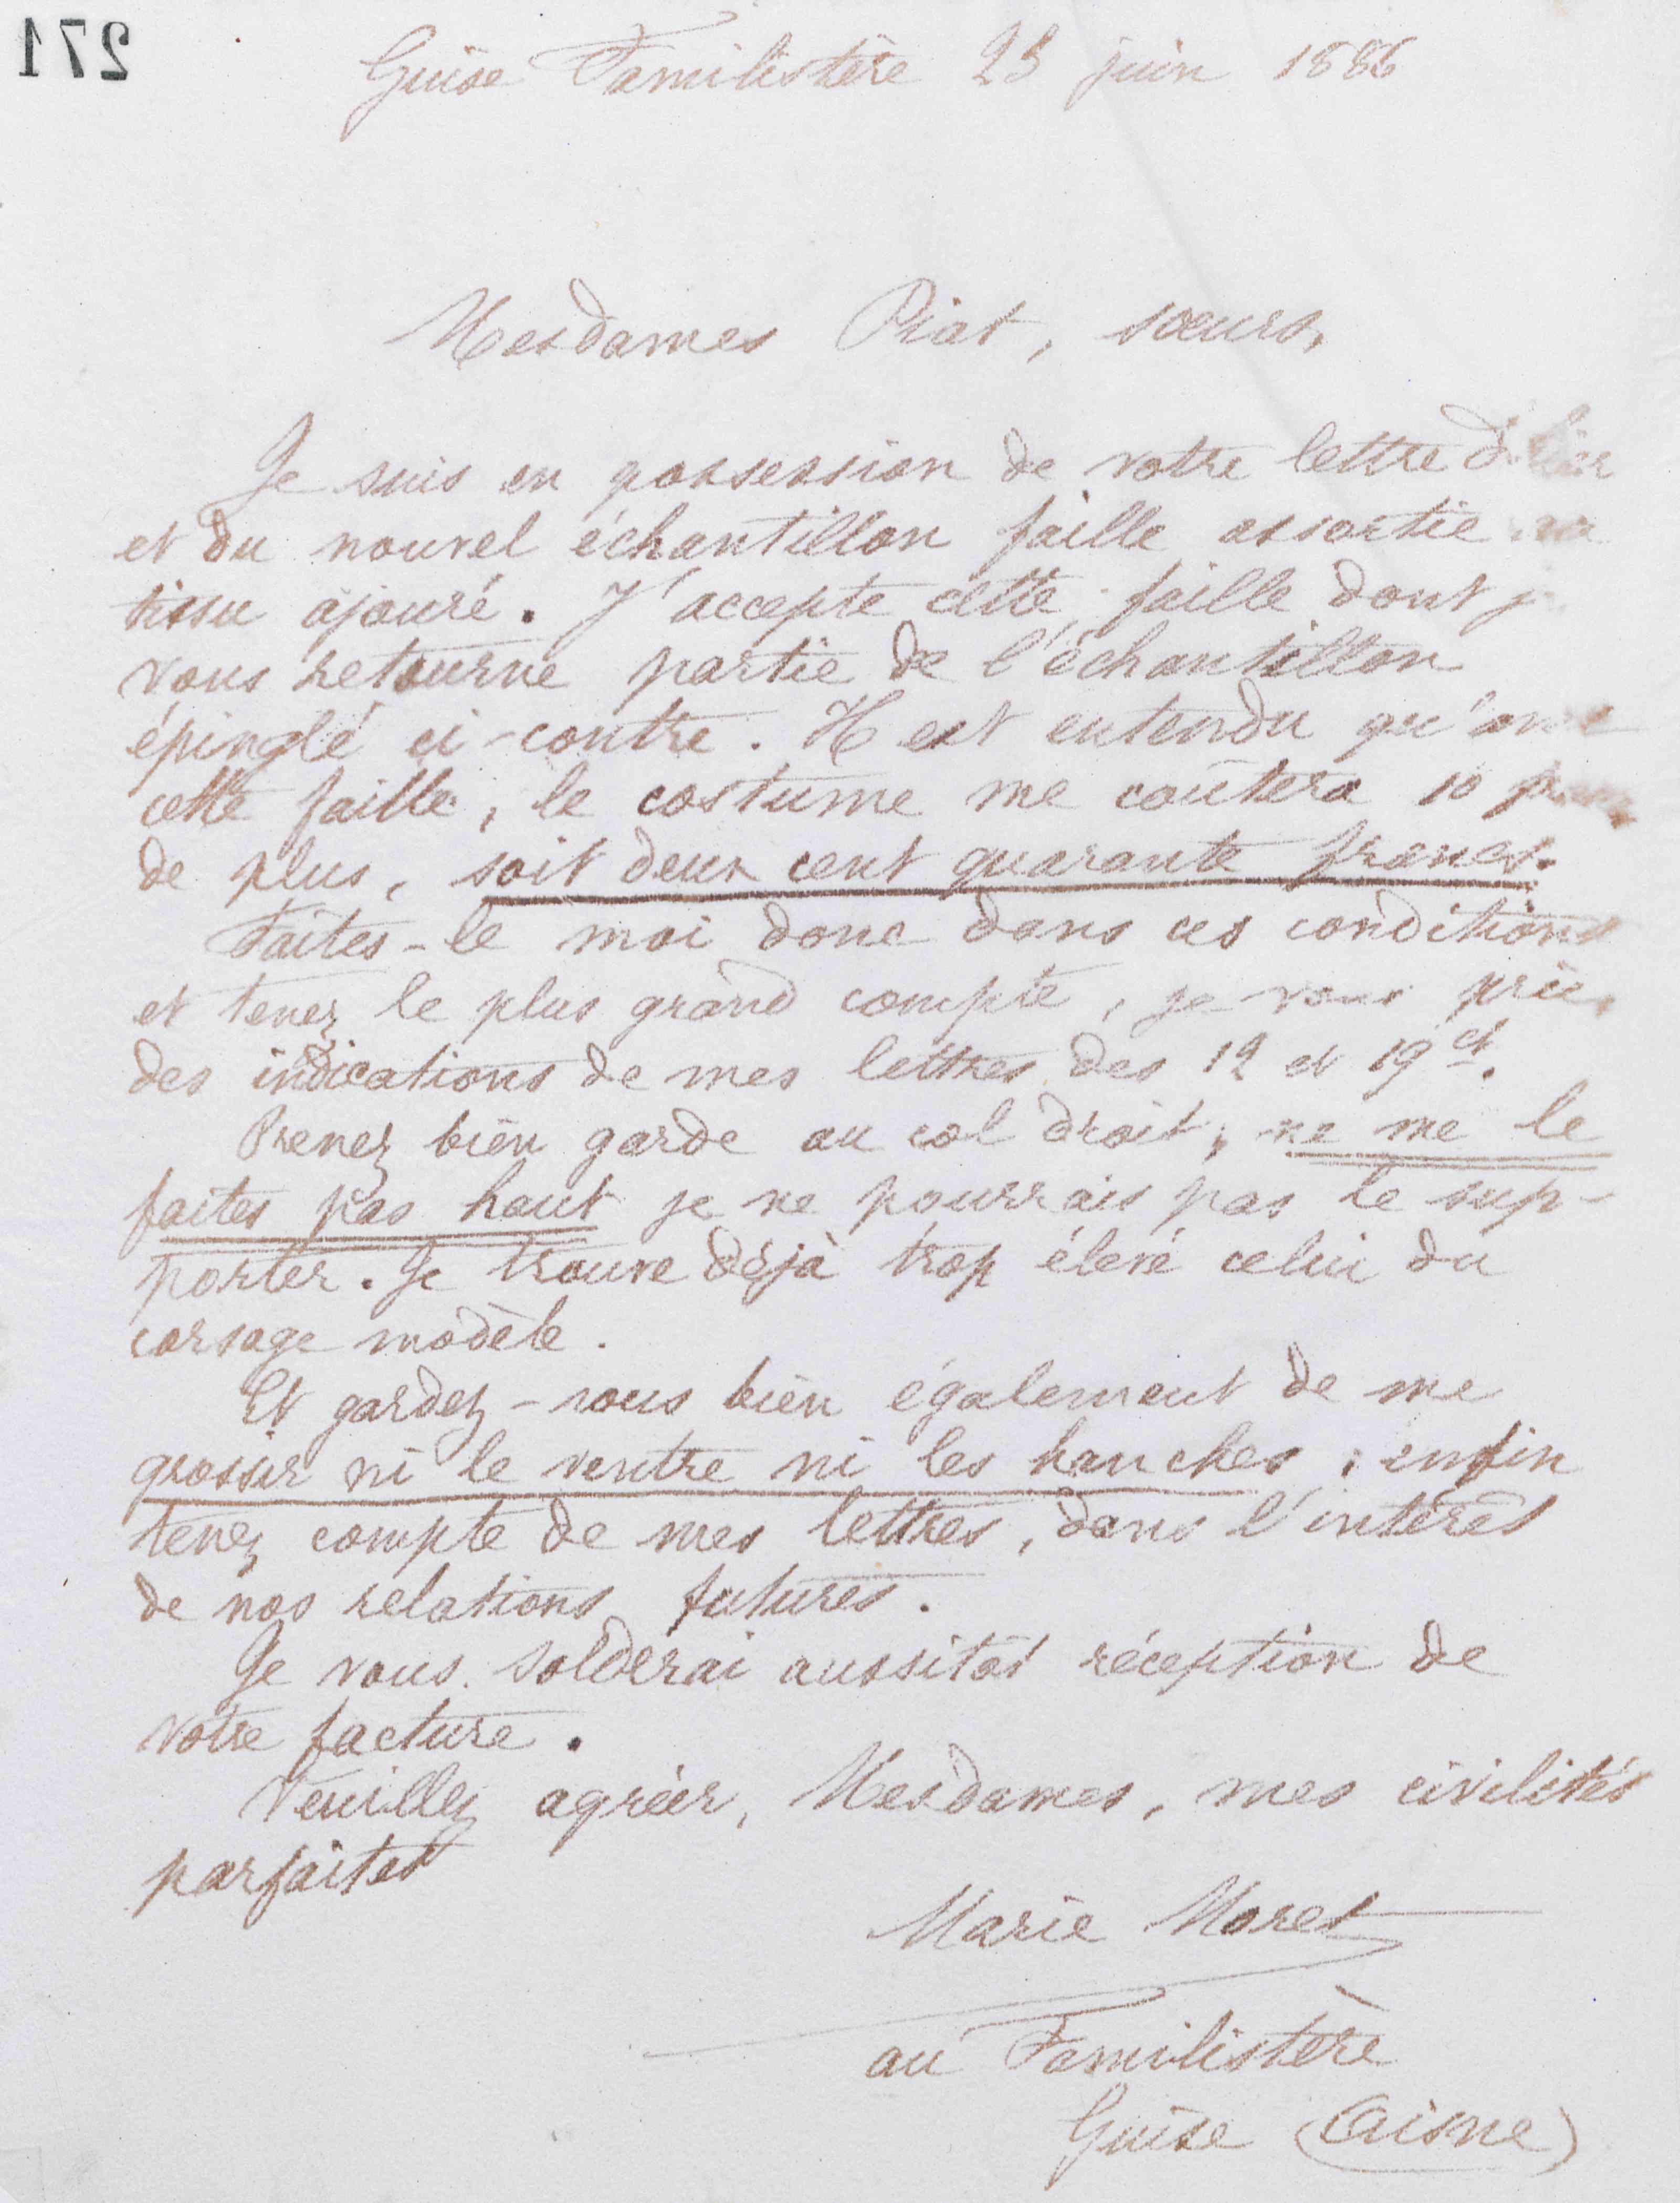 271
Guise Familistère 23 juin 1886
Mesdames Piat, sœurs,
Je suis en possession de votre lettre d'hier
et du nouvel échantillon faille assortie au
tissu ajouré. J'accepte cette faille dont je
vous retourne partie de l'échantillon
épinglé ci-contre. Il est entendu qu'avec
cette faille, le costume me coûtera 10 francs
de plus, soit deux cent quarante francs.
Faites-le moi donc dans ces conditions
et tenez le plus grand compte, je vous prie,
des indications de mes lettres des 12 et 19 ct.
Prenez bien garde au col droit, ne me le
faites pas haut je ne pourrais pas le sup-
porter. Je trouve déjà trop élevé celui du
corsage modèle.
Et gardez-vous bien également de me
grossir ni le ventre ni les hanches ; enfin
tenez compte de mes lettres, dans l'intérêt
de nos relations futures.
Je vous solderai aussitôt réception de
votre facture.
Veuillez agréer, Mesdames, mes civilités
parfaites
Marie Moret
au Familistère
Guise (Aisne)